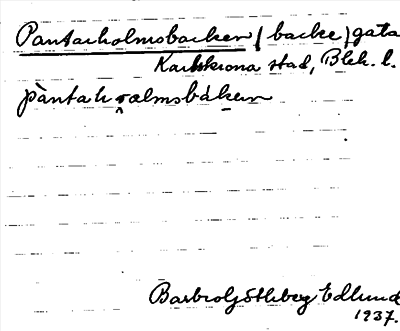 Pantarholmsbacken (backe) gata
Karlskrona stad, Blek. l.
pàntahɷlmsbákεn
Barbro Götlberg Edlund
1937.